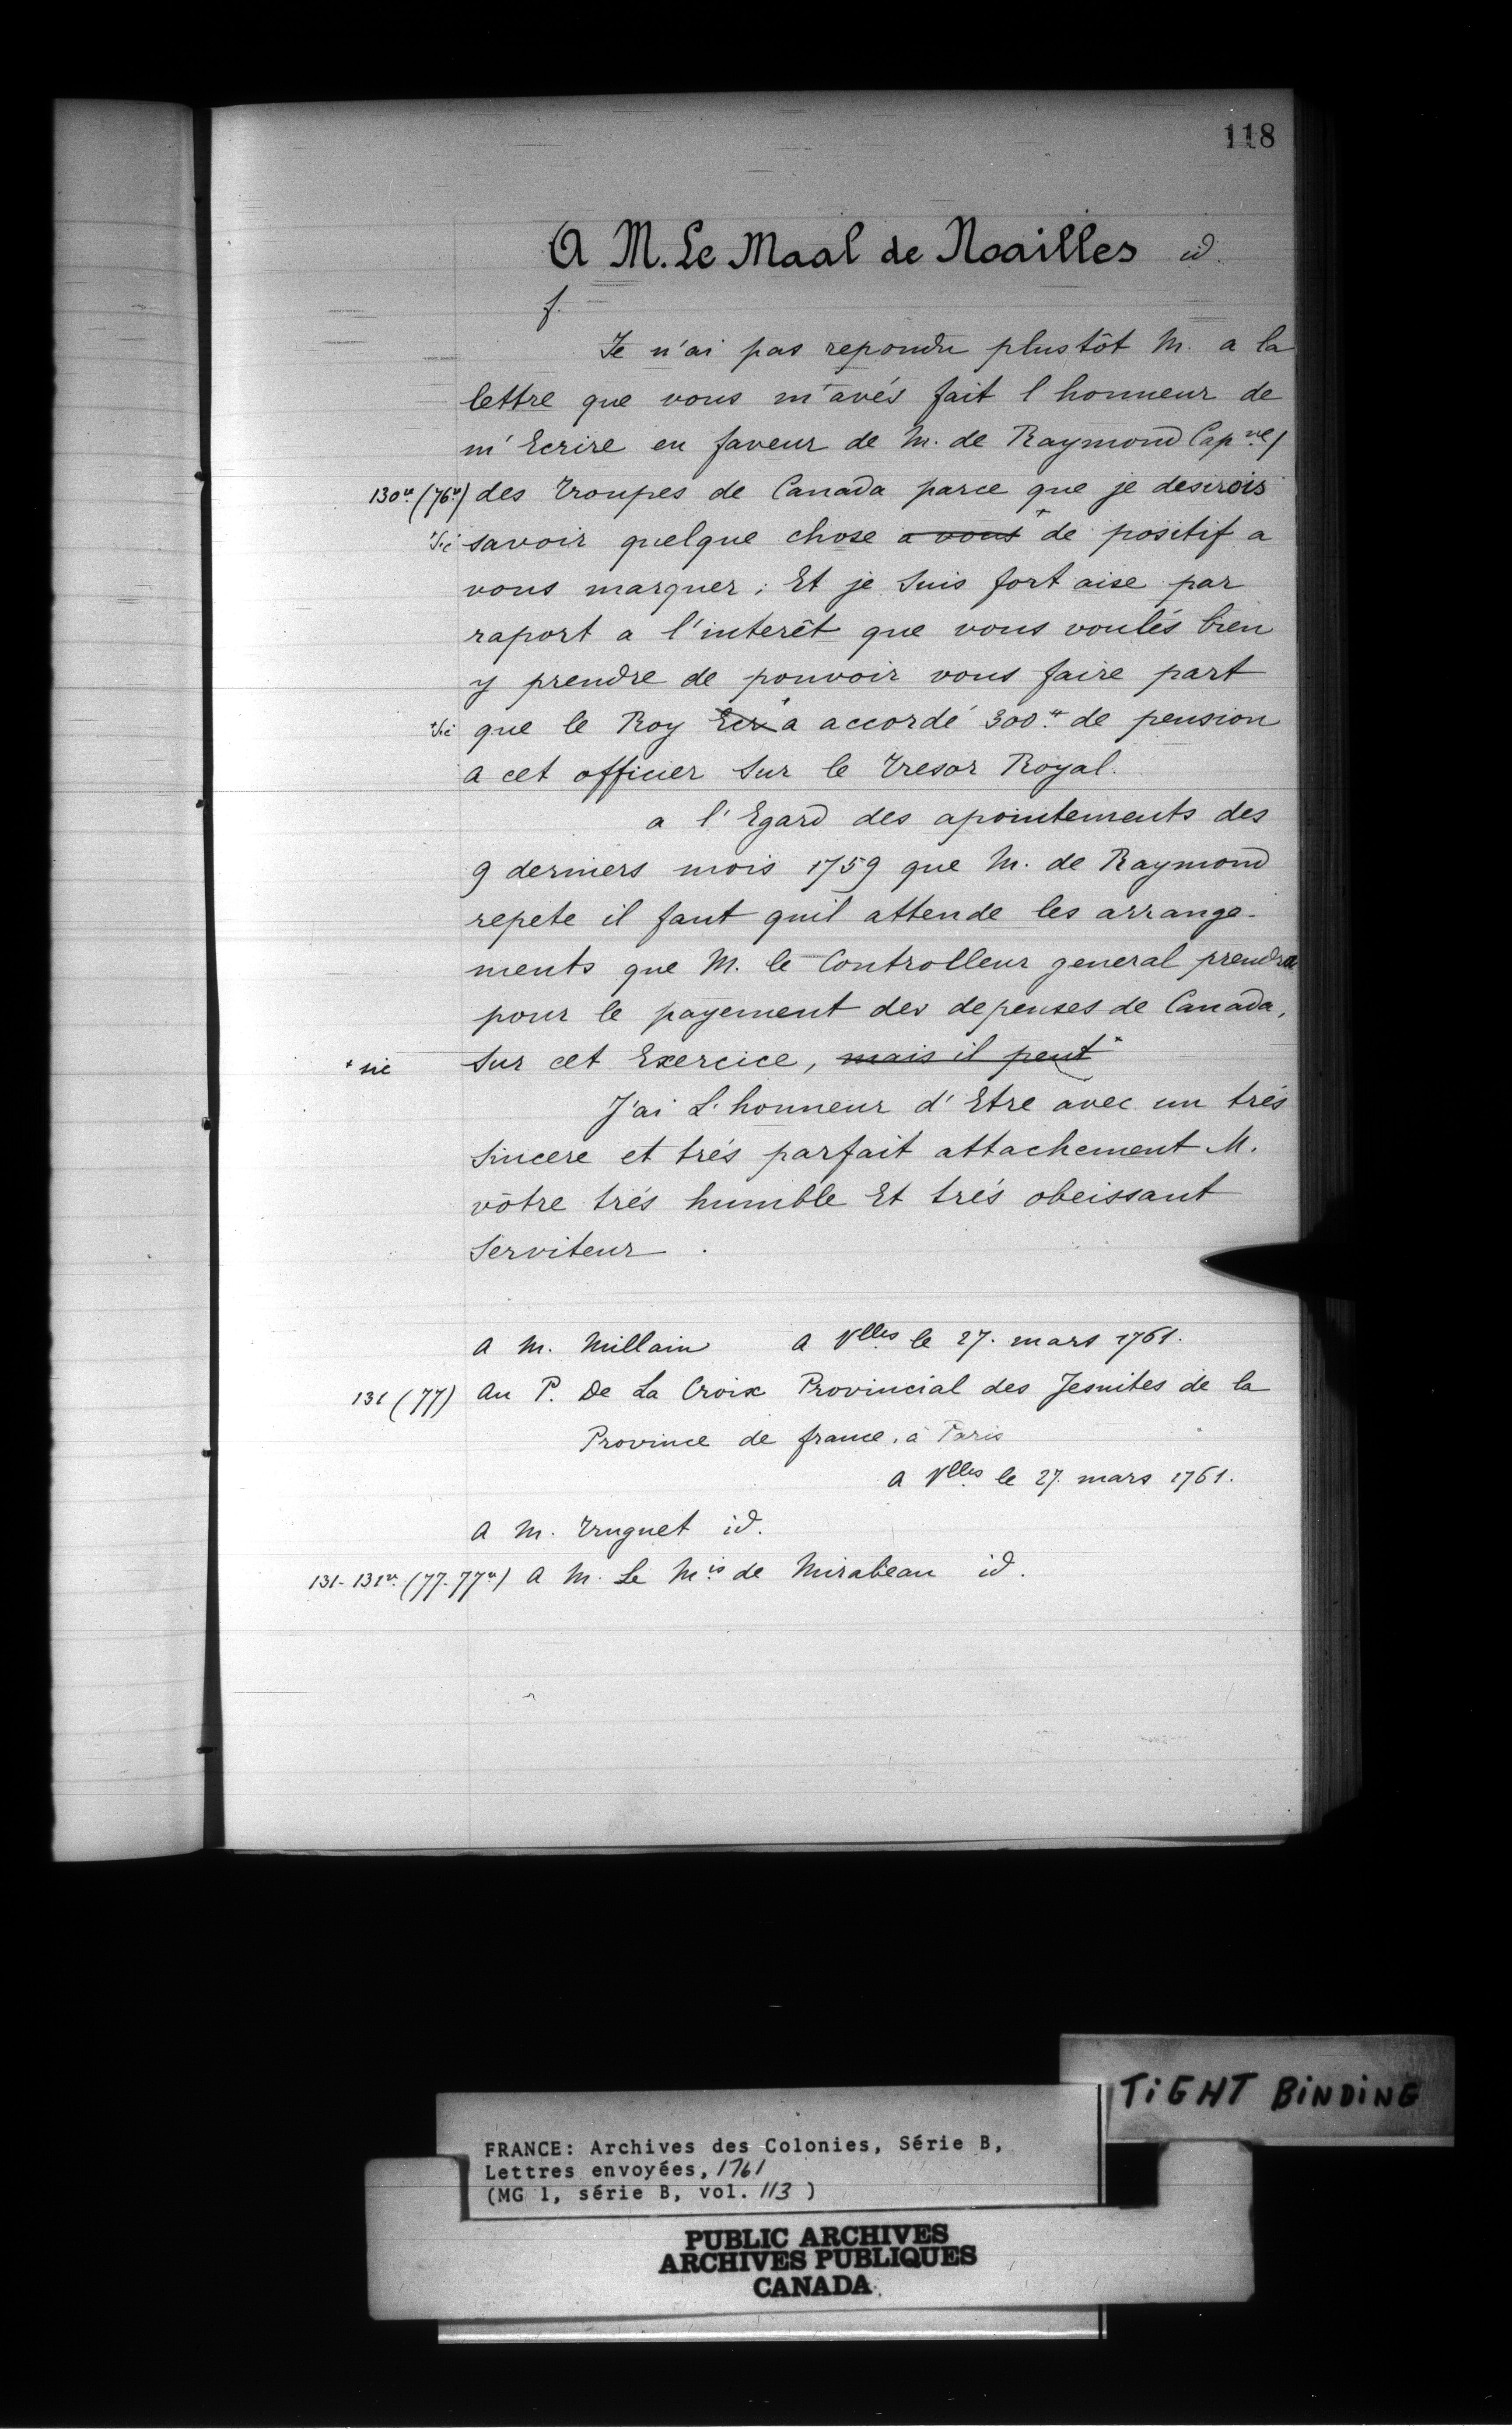 118
A M. Le Maal de Noailles id.
f.
Je n'ai pas repondu plustôt M. a la
lettre que vous m'avés fait l honneur de
m'Ecrire en faveur de M. de Raymond Cap.ne /
130v. (76v.) des troupes de Canada parce que je desirois
+sic savoir quelque chose ~~a vous~~ + de positif a
vous marquer ; Et je suis fort aise par
raport a l'interêt que vous voulés bien
y prendre de pouvoir vous faire part
+sic que le Roy ~~Ecr~~ + a accordé 300.tt de pension
a cet officier sur le tresor Royal.
a l'Egard des apointements des
9 derniers mois 1759 que M. de Raymond
repete il faut quil attende les arrange-
ments que M. le Controlleur general prendra
pour le payement des depenses de Canada,
+ sic sur cet Exercice, ~~mais il peut~~ +
J'ai L'honneur d'Etre avec un trés
sincere et trés parfait attachement M.
vôtre trés humble Et trés obeissant
Serviteur .
A M. Millain A Vlles le 27. mars 1761.
131 (77) Au P. De La Croix Provincial des Jesuites de la
Province de france, à Paris
A Vlles le 27. mars 1761.
A M. Truguet id.
131-131v. (77-77v) A M. Le M.is de Mirabeau id.
TiGHT BiNDiNG
FRANCE: Archives des Colonies, Série B,
Lettres envoyées, 1761
(MG 1, série B, vol. 113 )
PUBLIC ARCHIVES
ARCHIVES PUBLIQUES
CANADA